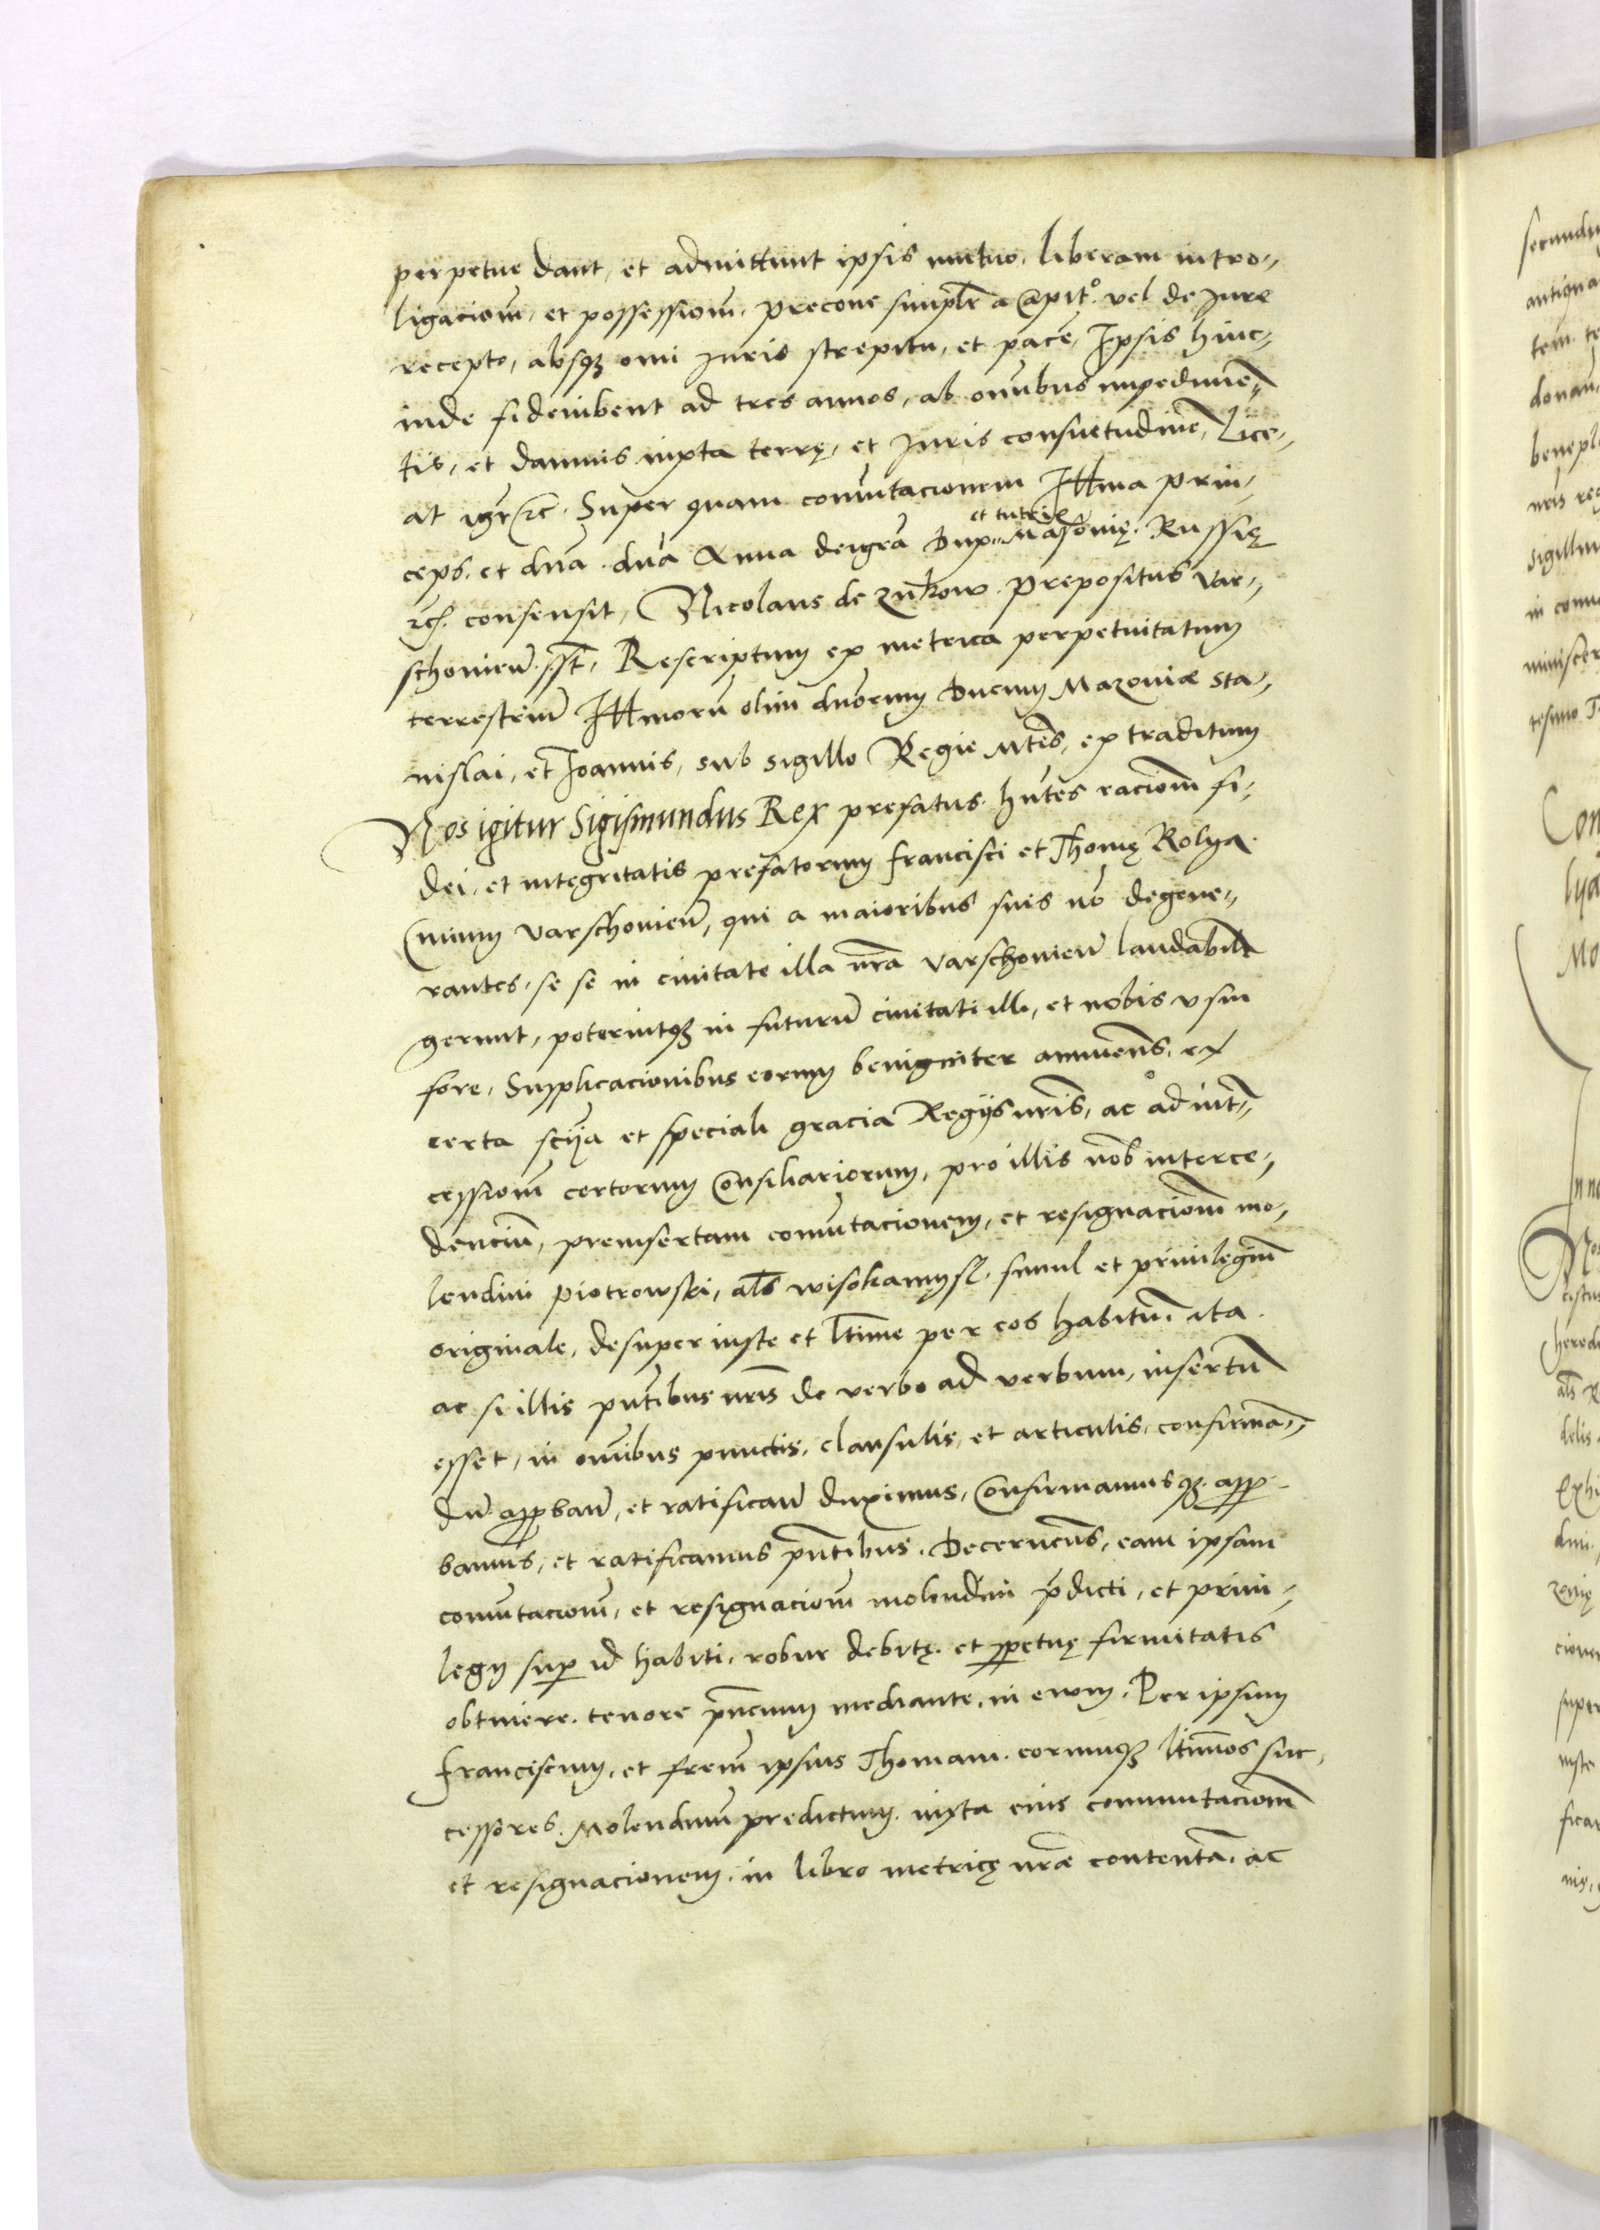 perpetue dant, et admittunt ipsis mutuo, liberam intro-
ligaciom, et possessiom, precone simplr a Capito. vel de Jure
recepto, absqз omi Juris strepitu, et pacẽ, Ipsis hinc-
inde fideiubent ad tres annos, ab omibus impedimẽ-
tis, et damnis iuxta terrę, et Juris consuetudinẽ, Lice-
at igr etc. Super quam comutacionem Illma prin-
ceps. et dna. dna Anna deigra Dux et tutrix Masouię. Russię
etc. consensit, Nicolaus de zukow prepositus Var-
schouieñ. sst, Rescriptum ex metrica perpetuitatum
terrestriũ Illmorũ olim dnorum Ducum Mazouiæ Sta-
nislai, et Joannis, sub sigillo Regie Mtis, extraditum
Nos igitur Sigismundus Rex prefatus. hñtes raciom fi-
dei, et integritatis prefatorum francisci et Thomę Rolya
Ciuium Varschouieñ, qui a maioribus suis nõ degene-
rantes, se se in ciuitate illa nra Varschouieñ laudabilr
gerunt, poteruntqз in futurũ ciuitati illi, et nobis vsui
fore, Supplicacionibus eorum benigniter annuens, ex
certa scīa et speciali gracia Regijs nris, ac ad inter-
cessiom certorum Consiliariorum, pro illis nob interce-
denciũ, preinsertam comutacionem, et resignaciom mo-
lendini Piotrowski, als wisokamysl. simul et priuilegiũ
originale, desuper iuste et ltime per eos habitũ, ita
ac si illis pñtibus nris de verbo ad verbum, insertũ
esset, in omibus punctis, clausulis, et articulis, confirmã-
dũ approbañ, et ratificañ duximus, Confirmamusqз. appro-
bamus, et ratificamus pñtibus. Decernens, eam ipsam
comutaciom, et resignaciom molendini pdicti, et priui-
legij sup id habiti, robur debitę. et ppetuę firmitatis
obtinere. tenore pñcium mediante. in ewm. Per ipsum
Franciscum, et frem ipsius Thomam. eorumqз ltimos suc-
cessores. Molendinũ predictum. iuxta eius commutaciom
et resignacionem. in libro metricę nræ contentã. ac